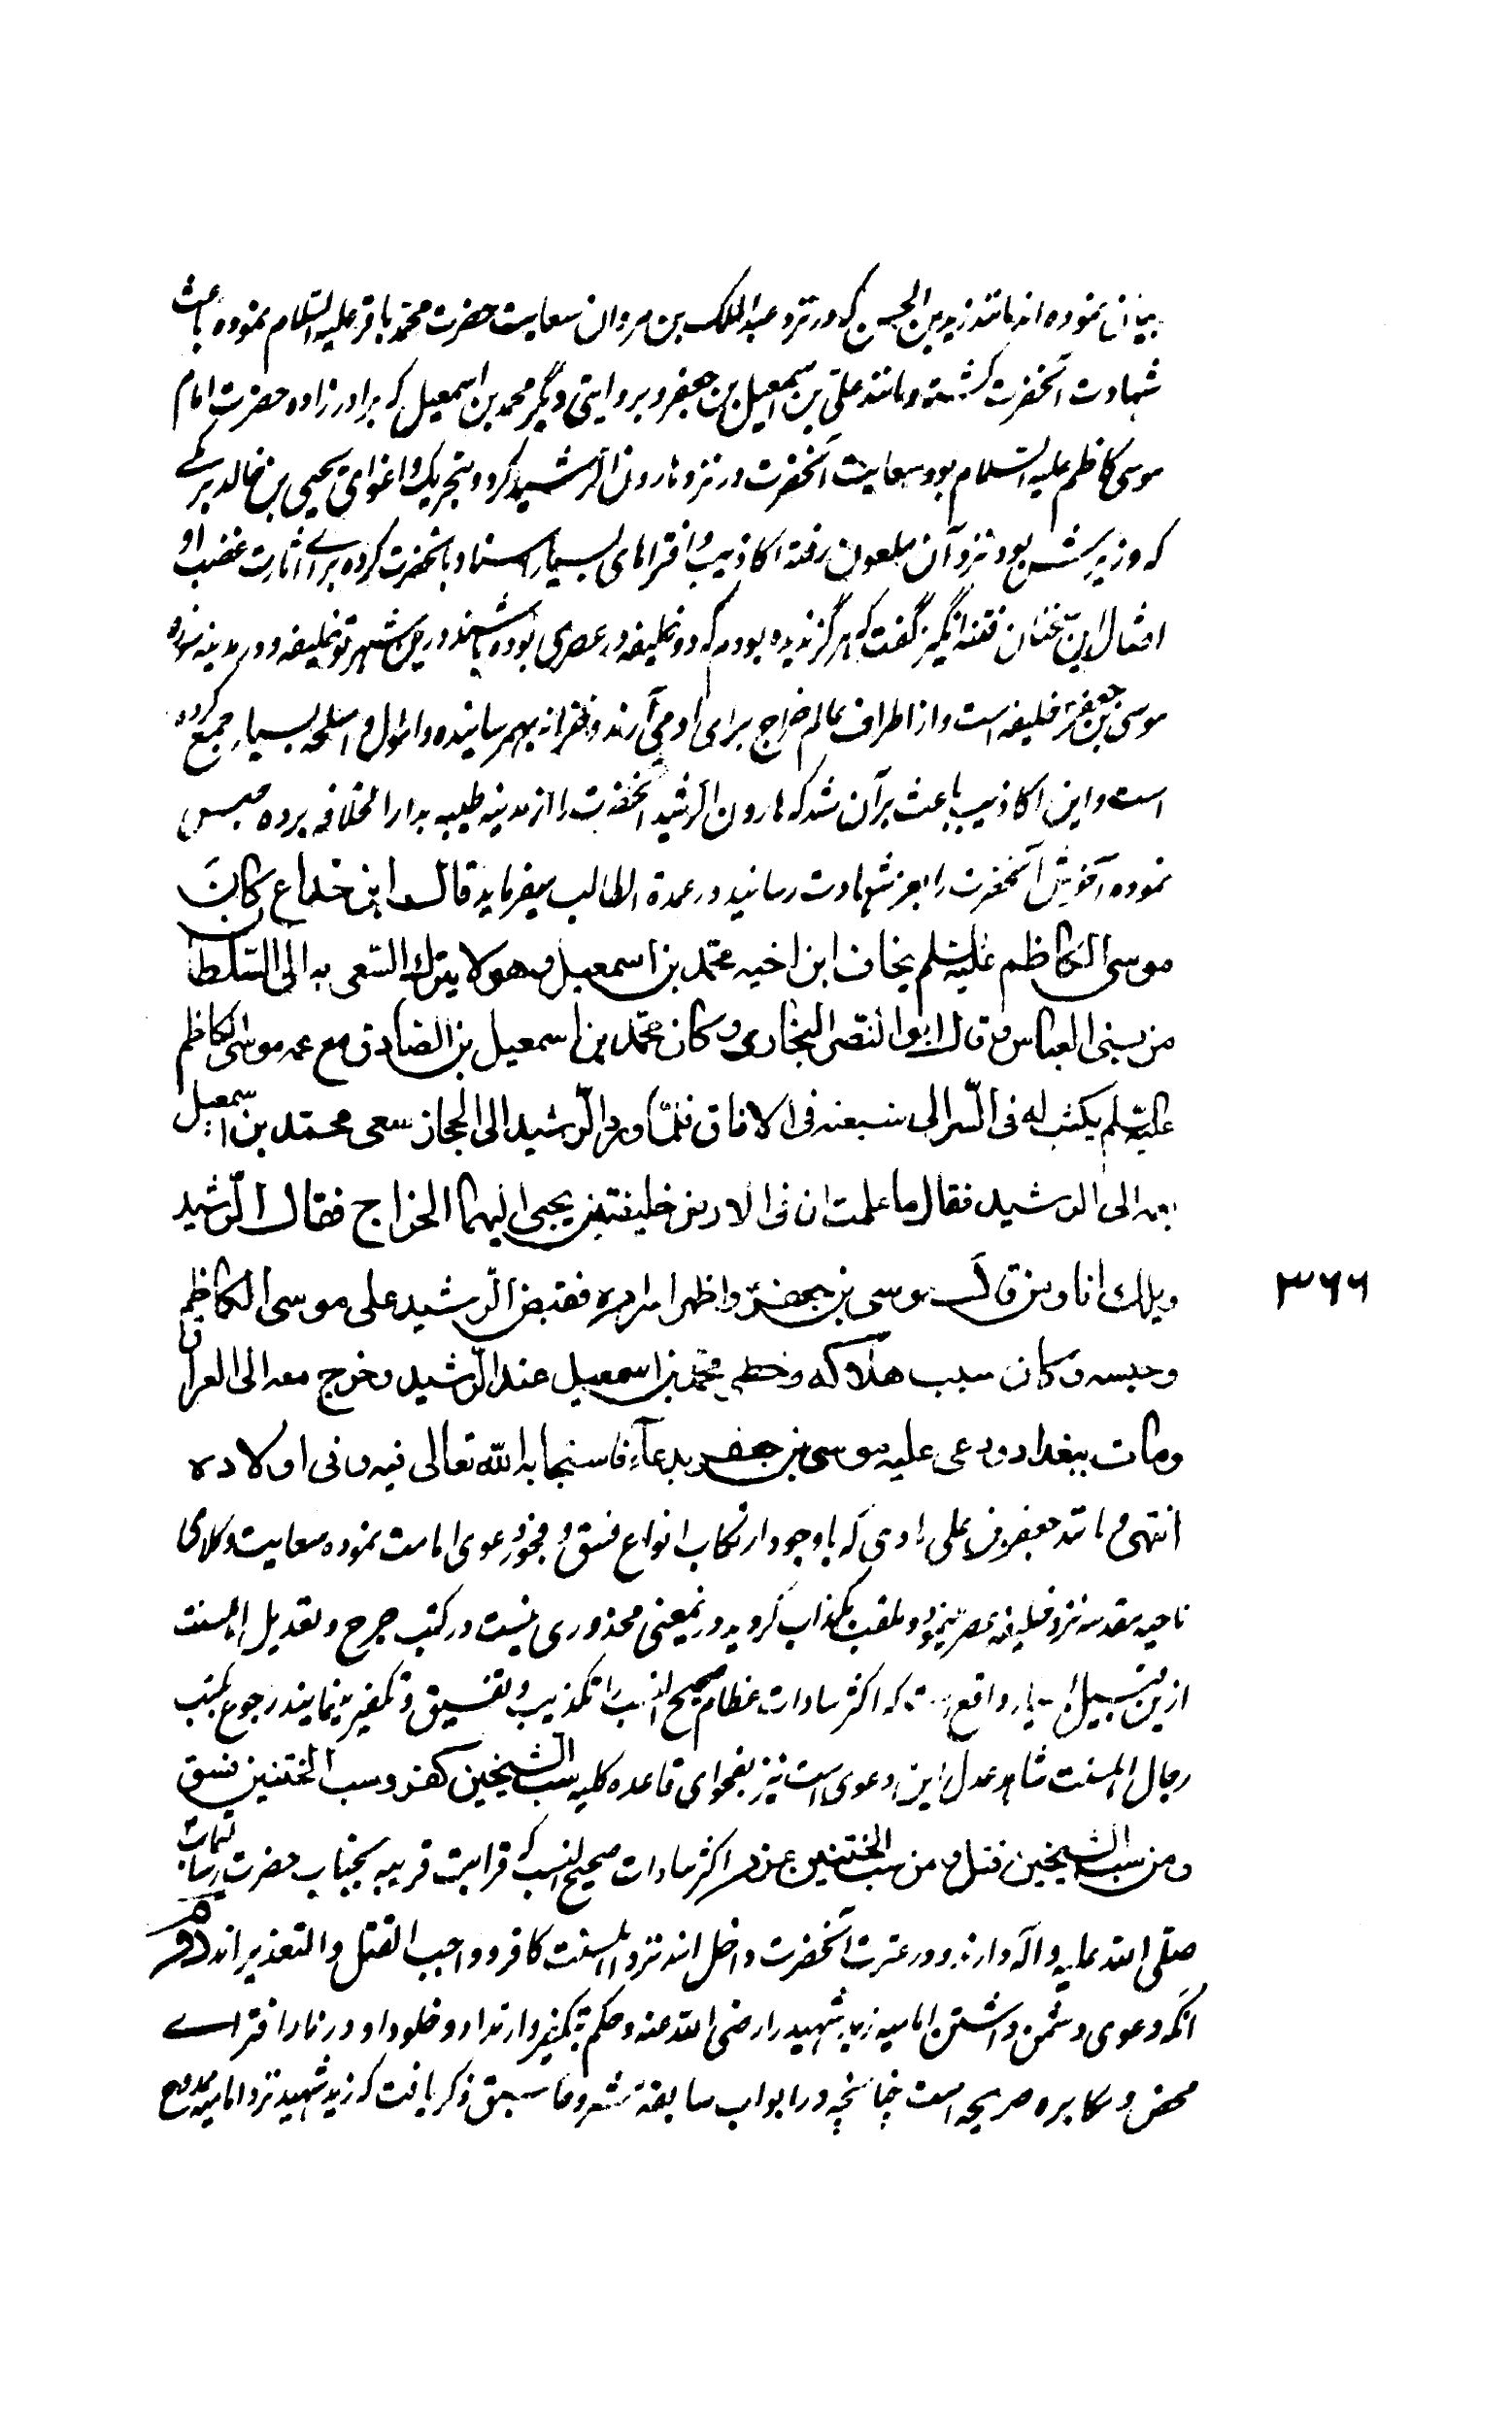 بیانی نموده‌اند مانند زید بن الحسن که در نزد عبد الملک بن مروان سعایت حضرت محمّد باقر علیه السّلام نموده باعث
شهادت آنحضرت گشته و مانند علیّ بن اسمعیل بن جعفر و بروایتی دیگر محمد بن اسمعیل که برادر زاده حضرت امام
موسی کاظم علیه السّلام بود سعایت آنحضرت در نزد هارون الرّشید کرد و بتحریک و اغوای یحیی بن خالد برمکے
که وزیرش بود نزد آن ملعون رفته اکاذیب و افتراهای بسیار اسناد بآنحضرت کرده برای اثارت غضب او
امثال این سخنان فتنه انگیز گفت که هرگز ندیده بودم که دو خلیفه در عصری بوده باشند درین شهر تو خلیفه و در مدینه منوره
موسی بن جعفر خلیفه است و از اطراف عالم خراج برای او می‌آرند و خزانه بهم رسانیده و اموال و اسلحه بسیار جمع کرده
است و این اکاذیب باعث بر آن شد که هارون الرّشید آنحضرت را از مدینه طیبه بدار الخلافه برده حبس
نموده آخرش آنحضرت را بعز شهادت رسانید در عمدة الطالب میفرماید قال ابن خداع کانَ
موسی الکاظم علیه السّلم یخاف ابن اخیه محمّد بن اسمعیل و هو لا یترک السّعی به الی السّلطا
من بنی العباس و قال ابو النّصر البخاری و کان محمّد بن اسمعیل بن الصّادق مع عمه موسی الکاظم
علیه السّلم یکتب له فی السّر الی شیعته فی الافاق فلمّا ورد الرّشید الی الحجاز سعی محمّد بن اسمعیل
بعمه الی الرشید فقال ما علمت ان فی الارض خلیفتین یجبی الیهما الخراج فقال الرّشید
ویلک انا و من قال موسی بن جعفر و اظهر اسراره فقبض الرّشید علی موسی الکاظم
۳۶۶
و حبسه و کان سبب هلاکه و حظی محمّد بن اسمعیل عند الرّشید و خرج معه الی العراق
و مات ببغداد و دعی علیه موسی بن جعفر بدعآء فاستجابه الله تعالی فیه و فی اولاده
انتهی و مانند جعفر بن علی هادی که باوجود ارتکاب انواع فسق و فجور دعوی امامت نموده سعایت وکلای
ناحیه مقدسه نزد خلیفه عصر مینمود و ملقب بکذاب گردید و در اینمعنی محذوری نیست در کتب جرح و تعدیل اهلسنت
ازین قبیل بسیار واقع است که اکثر سادات عظام صحیح النسب را تکذیب و تفسیق و تکفیر مینمایند رجوع بکتب
رجال اهلسنت شاهد عدل این دعوی است نیز بفحوای قاعده کلیه سب الشیخین کفر و سب الختنین فسق
و من سب الشیخین قتل و من سب الختنین عزر اکثر سادات صحیح النسب که قرابت قریبه بجناب حضرت رسالتمآب
صلّی الله علیه و آله دارند و در عترت آنحضرت داخل اند نزد اهلسنت کافر و واجب القتل و التعذیر اند و
آنکه دعوی دشمن داشتن امامیه زید شهید را رضی الله عنه و حکم بتکفیر و ارتداد و خلود او در نار افتراے
محض و مکابره صریحه است چنانچه در ابواب سابقه مشروحا سبق ذکر یافت که زید شهید نزد امامیه ممدوح